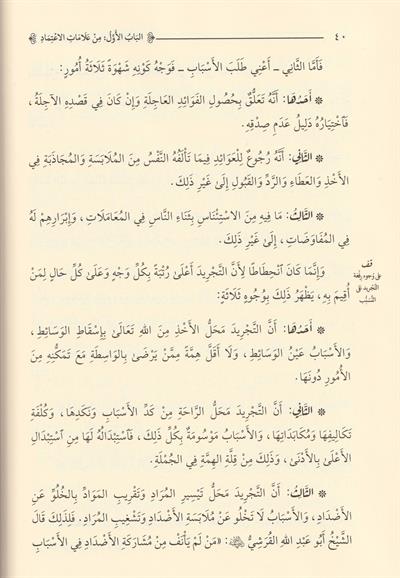 ٤٠ البَابُ الأَوَّلُ: مِنْ عَلَامَاتِ الاعْتِمَادِ
فَأَمَّا الثَّانِي ـ أَعْنِي طَلَبَ الأَسْبَابِ ـ فَوَجْهُ كَوْنِهِ شَهْوَةً ثَلَاثَةُ أُمُورٍ:
* أَحَدُهَا: أَنَّهُ تَعَلُّقٌ بِحُصُولِ الفَوَائِدِ العَاجِلَةِ وَإِنْ كَانَ فِي قَصْدِهِ الآجِلَةُ،
فَٱخْتِيَارُهُ دَلِيلُ عَدَمِ صِدْقِهِ.
* الثَّانِي: أَنَّهُ رُجُوعٌ لِلْعَوَائِدِ فِيمَا تَأْلَفُهُ النَّفْسُ مِنَ المُلَابَسَةِ وَالمُجَاذَبَةِ فِي
الأَخْذِ وَالعَطَاءِ وَالرَّدِّ وَالقَبُولِ إِلَى غَيْرِ ذَلِكَ.
* الثَّالِثُ: مَا فِيهِ مِنَ الِاسْتِئْنَاسِ بِثَنَاءِ النَّاسِ فِي المُعَامَلَاتِ، وَإِبْرَارِهِمْ لَهُ
فِي المُفَاوَضَاتِ، إِلَى غَيْرِ ذَلِكَ.
وَإِنَّمَا كَانَ ٱنْحِطَاطًا لِأَنَّ التَّجْرِيدَ أَعْلَى رُتْبَةً بِكُلِّ وَجْهٍ وَعَلَى كُلِّ حَالٍ لِمَنْ
أُقِيمَ بِهِ، يَظْهَرُ ذَلِكَ بِوُجُوهٍ ثَلَاثَةٍ:
قف
على وجوه رفعة
التجريد على
التسبب
* أَحَدُهَا: أَنَّ التَّجْرِيدَ مَحَلُّ الأَخْذِ مِنَ اللهِ تَعَالَى بِإِسْقَاطِ الوَسَائِطِ،
وَالأَسْبَابُ عَيْنُ الوَسَائِطِ، وَلَا أَقَلَّ هِمَّةً مِمَّنْ يَرْضَى بِالوَاسِطَةِ مَعَ تَمَكُّنِهِ مِنَ
الأُمُورِ دُونَهَا.
* الثَّانِي: أَنَّ التَّجْرِيدَ مَحَلُّ الرَّاحَةِ مِنْ كَدِّ الأَسْبَابِ وَنَكَدِهَا، وَكُلْفَةِ
تَكَالِيفِهَا وَمُكَابَدَاتِهَا، وَالأَسْبَابُ مَوْسُومَةٌ بِكُلِّ ذَلِكَ، فَٱسْتِبْدَالُهُ لَهَا مِنِ ٱسْتِبْدَالِ
الأَعْلَى بِالأَدْنَى، وَذَلِكَ مِنْ قِلَّةِ الهِمَّةِ فِي الجُمْلَةِ.
* الثَّالِثُ: أَنَّ التَّجْرِيدَ مَحَلُّ تَيْسِيرِ المُرَادِ وَتَقْرِيبِ المَوَادِّ بِالخُلُوِّ عَنِ
الأَضْدَادِ، وَالأَسْبَابُ لَا تَخْلُو عَنْ مُلَابَسَةِ الأَضْدَادِ وَتَشْغِيبِ المُرَادِ. فَلِذَلِكَ قَالَ
الشَّيْخُ أَبُو عَبْدِ اللهِ القُرَشِيُّ: «مَنْ لَمْ يَأْنَفْ مِنْ مُشَارَكَةِ الأَضْدَادِ فِي الأَسْبَابِ